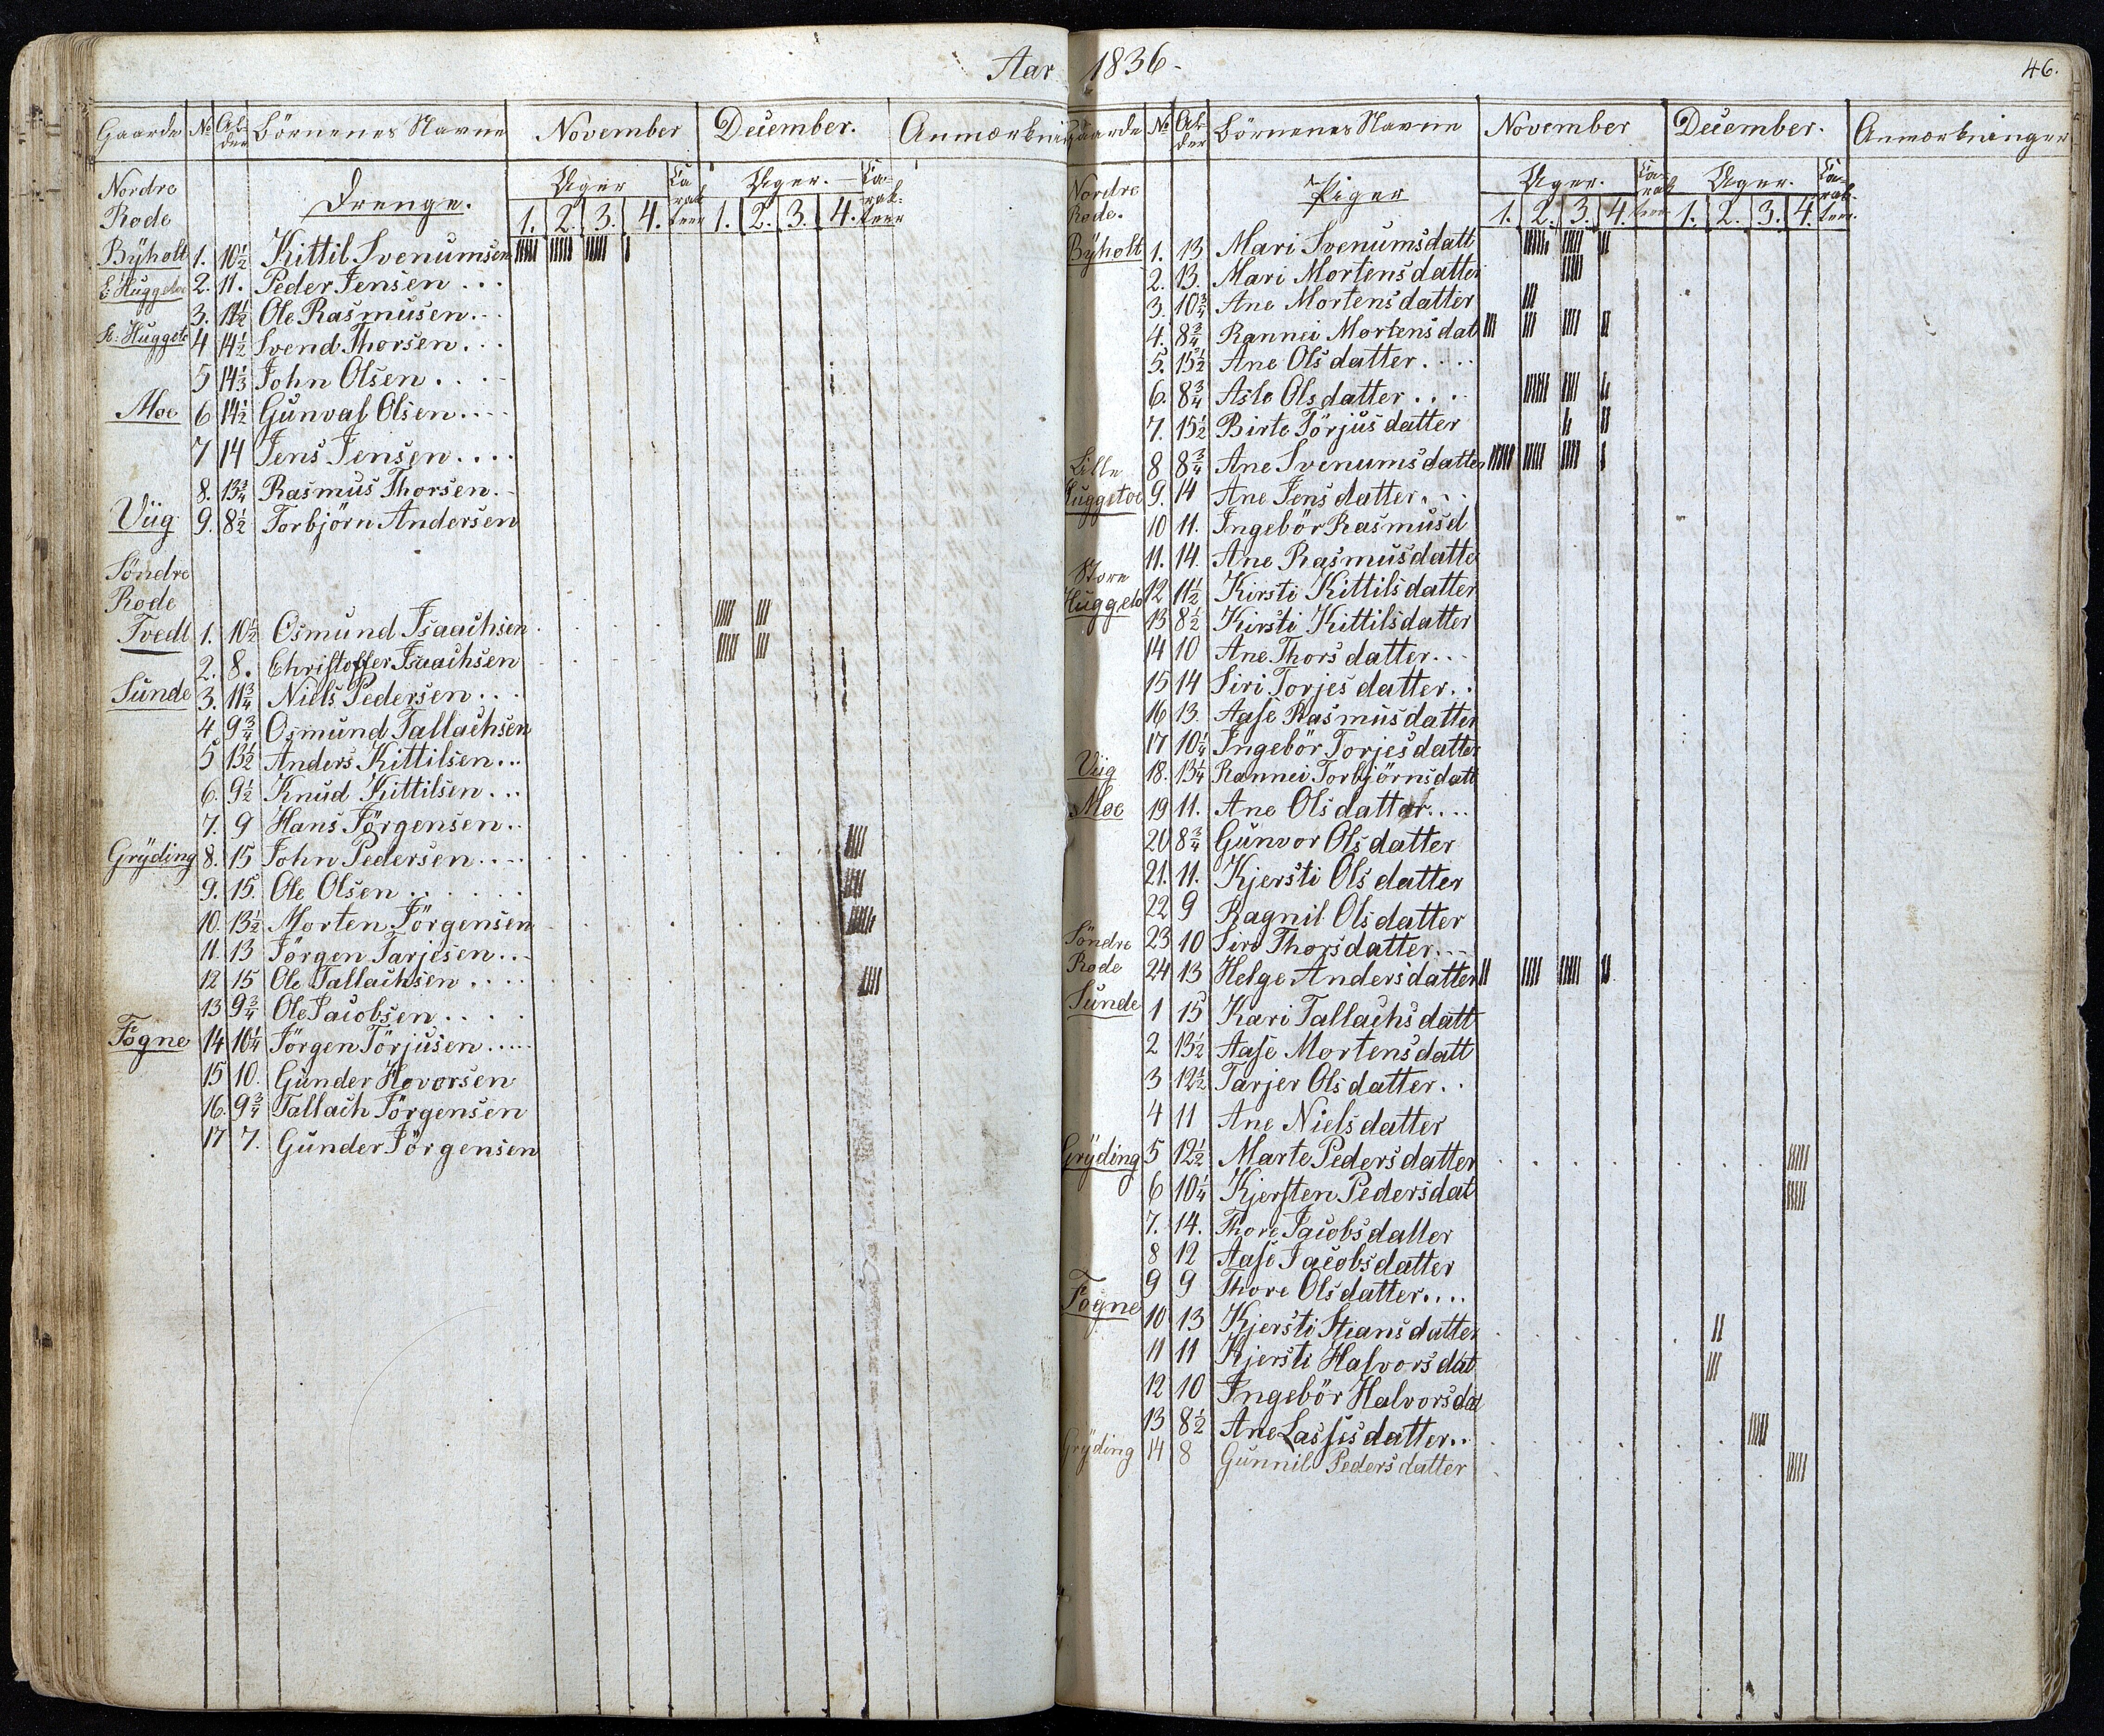 Aar 1836.
46.
Gaarde No Alder Börnenes Navne November December. Anmærkning
Nordre Drenge. Uger Uger.
Rode 1. 2. 3. 4. 1. 2. 3. 4.
Bÿholt 1. 10½ Kittil Svenumsen
L: Huggetoe 2. 11. Peder Jensen...
3. 11½ Ole Rasmusen...
St: Huggeto 4 14½ Svend Thorsen...
5 14⅓ John Olsen....
Moe 6 14½ Gunval Olsen....
7 14 Jens Jensen....
8. 13¾ Rasmus Thorsen..
Viig 9. 8½ Torbjörn Andersen
Söndre
Rode
Tvedt 1. 10½ Osmund Isaachsen
2. 8. Christoffer Isaachsen
Sunde 3. 11¾ Niels Pedersen...
4 9¾ Osmund Tallachsen
5 13½ Anders Kittilsen...
6. 9½ Knud Kittilsen...
7. 9 Hans Jörgensen..
Grÿding 8. 15 John Pedersen....
9. 15. Ole Olsen......
10. 13½ Morten Jörgensen
11. 13 Jörgen Tarjesen...
12 15 Ole Tallachsen....
13 9¾ Ole Jacobsen....
Fögne 14 10¼ Jörgen Törjusen....
15 10. Gunder Hovorsen
16. 9¾ Tallach Jörgensen
17 7. Gunder Jörgensen
Gaarde No Alder Börnenes Navne November December. Anmærkninger
Nordre Piger Uger. Uger.
Rode. 1. 2. 3. 4. 1. 2. 3. 4.
Bÿholt 1. 13 Mari Svenumsdatt
2. 13. Mari Mortensdatter
3. 10¾ Ane Mortensdatter
4. 8¾ Rannei Mortensdat
5. 15½ Ane Olsdatter....
6. 8¾ Aslo Olsdatter....
7. 15½ Birte Törjusdatter
Lille 8 8¾ Ane Svenumsdatter
Huggetoe 9. 14 Ane Jensdatter...
10 11. Ingebör Rasmusd
11. 14. Ane Rasmusdatte
Store 12 11½ Kirsti Kittilsdatter
Huggeto 13 8½ Kirsti Kittilsdatter
14 10 Ane Thorsdatter...
15 14 Siri Torjesdatter..
16 13. Aase Rasmusdatter
17 10¼ Ingebör Torjesdatter
Viig 18. 13¼ Rannei Torbjörnsdatt
Moe 19 11. Ane Olsdatter....
20 8¾ Gunvor Olsdatter
21. 11. Kjersti Olsdatter
22 9 Ragnil Olsdatter
Söndre 23 10 Siro Thorsdatter...
Rode 24 13 Helge Andersdatter
Sunde 1 15 Kari Tallachsdatt
2 13½ Aase Mortensdatt
3 12½ Tarjer Olsdatter..
4 11 Ane Nielsdatter
Grÿding 5 12½ Marte Pedersdatter
6 10¼ Kjersten Pedersdat
7. 14. Thore Jacobsdatter
8 12 Aase Jacobsdatter
9 9 Thore Olsdatter....
Fögne 10 13 Kjersti Stiansdatter
11 11 Kjersti Halvorsdat
12 10 Ingebör Halvorsdat
13 8½ Ane Lassesdatter..
Grÿding 14 8 Gunnil Pedersdatter